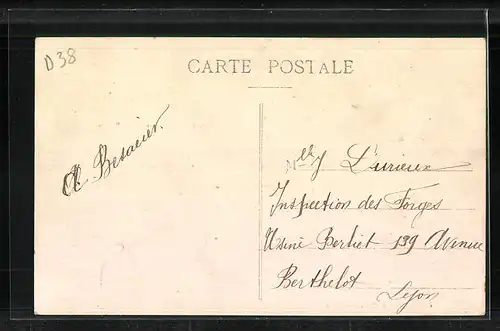 D38
CARTE POSTALE
A. Besacier.
Mlle J L'urieux
Inspection des Forges
Usine Berliet 139 Avenue
Berthelot
Lyon